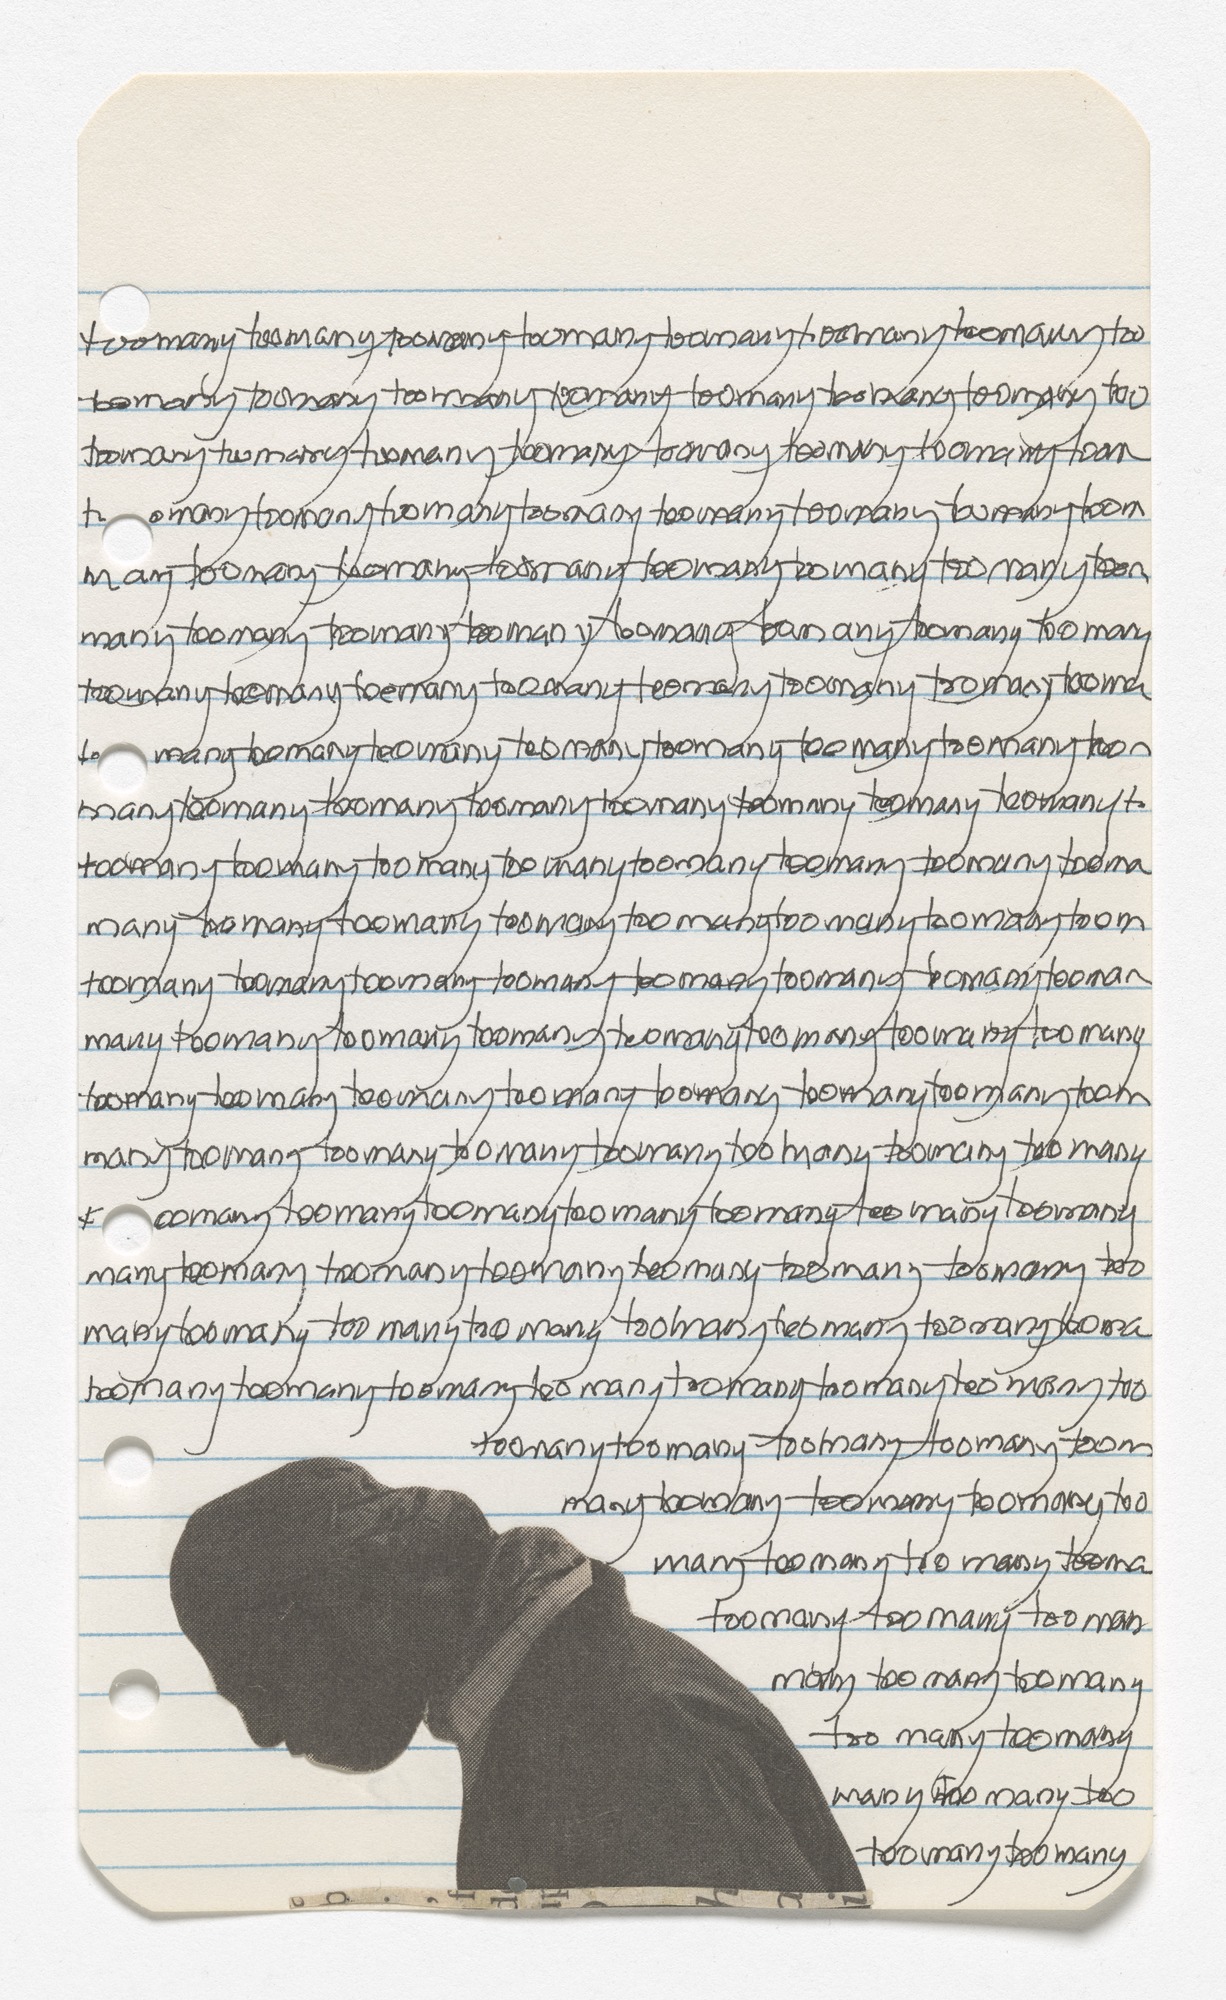 toomany toomany toomany toomany toomany toomany toomany too
toomany toomany toomany toomany toomany toomany toomany too
toomany toomany toomany toomany toomany toomany toomany toom
t omany toomany toomany toomany toomany toomany toomany toom
many toomany toomany toomany toomany toomany toomany toom
many toomany toomany toomany toomany toomany toomany too many
toomany toomany toomany toomany toomany toomany toomany tooma
to many toomany toomany toomany toomany too many toomany too
many toomany toomany toomany toomany toomany toomany toomany t
toomany toomany toomany too many toomany toomany toomany tooma
many toomany toomany toomany too many too many toomany toom
toomany toomany toomany toomany toomany toomany toomany tooman
many toomany toomany toomany toomany too many toomany toomany
toomany toomany toomany toomany toomany toomany toomany toom
many toomany toomany toomany toomany too many toomany too many
t oomany toomany toomany too many toomany too many toomany
many toomany toomany toomany toomany toomany toomany too
many toomany too many too many toomany toomany toomany tooma
toomany toomany toomany too many toomany toomany too many too
toomany toomany toomany toomany toom
many toomany toomany toomany too
many toomany too many tooma
toomany too many too man
many too many toomany
too many toomany
many too many too
toomany toomany